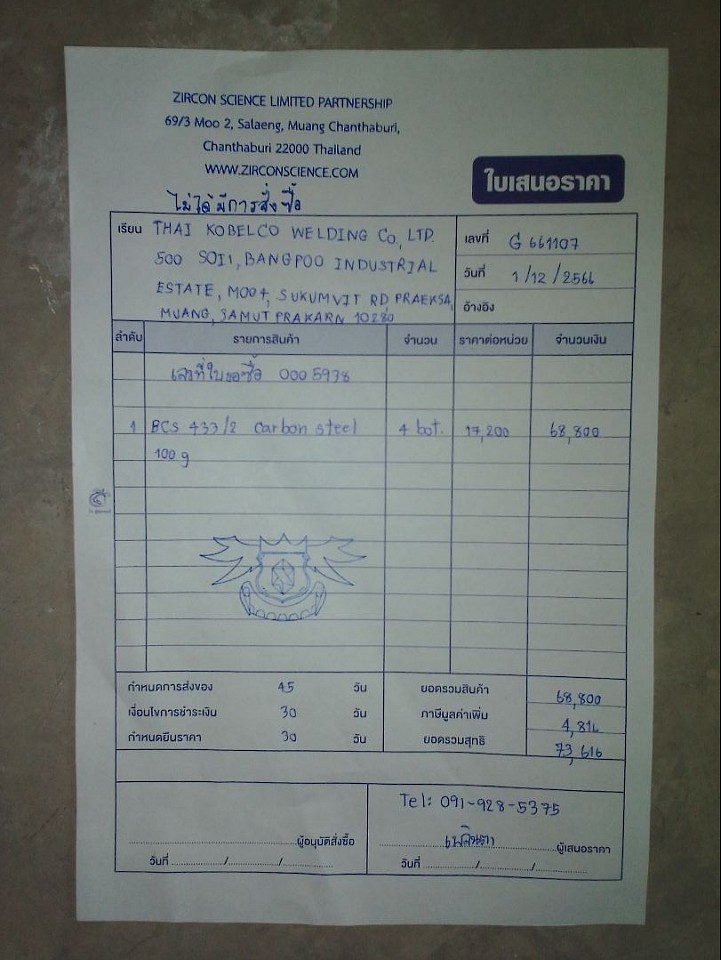 ZIRCON SCIENCE LIMITED PARTNERSHIP
69/3 Moo 2, Salaeng, Muang Chanthaburi,
Chanthaburi 22000 Thailand
WWW.ZIRCONSCIENCE.COM
ใบเสนอราคา
ไม่ได้มีการสั่งซื้อ
เรียน THAI KOBELCO WELDING CO, LTD.
500 SOI1, BANGPOO INDUSTRIAL
ESTATE, MOO4, SUKUMVIT RD, PRAEKSA,
MUANG, SAMUT PRAKARN 10280
เลขที่ G 661107
วันที่ 1/12/2566
อ้างอิง
ลำดับ รายการสินค้า จำนวน ราคาต่อหน่วย จำนวนเงิน
เลขที่ใบขอซื้อ 0005938
1 BCS 433/2 carbon steel 4 bot. 17,200 68,800
100 g
กำหนดการส่งของ 45 วัน ยอดรวมสินค้า 68,800
เงื่อนไขการชำระเงิน 30 วัน ภาษีมูลค่าเพิ่ม 4,816
กำหนดยืนราคา 30 วัน ยอดรวมสุทธิ 73,616
Tel: 091-928-5375
ผู้อนุมัติสั่งซื้อ
วันที่ / /
ผู้เสนอราคา
วันที่ / /